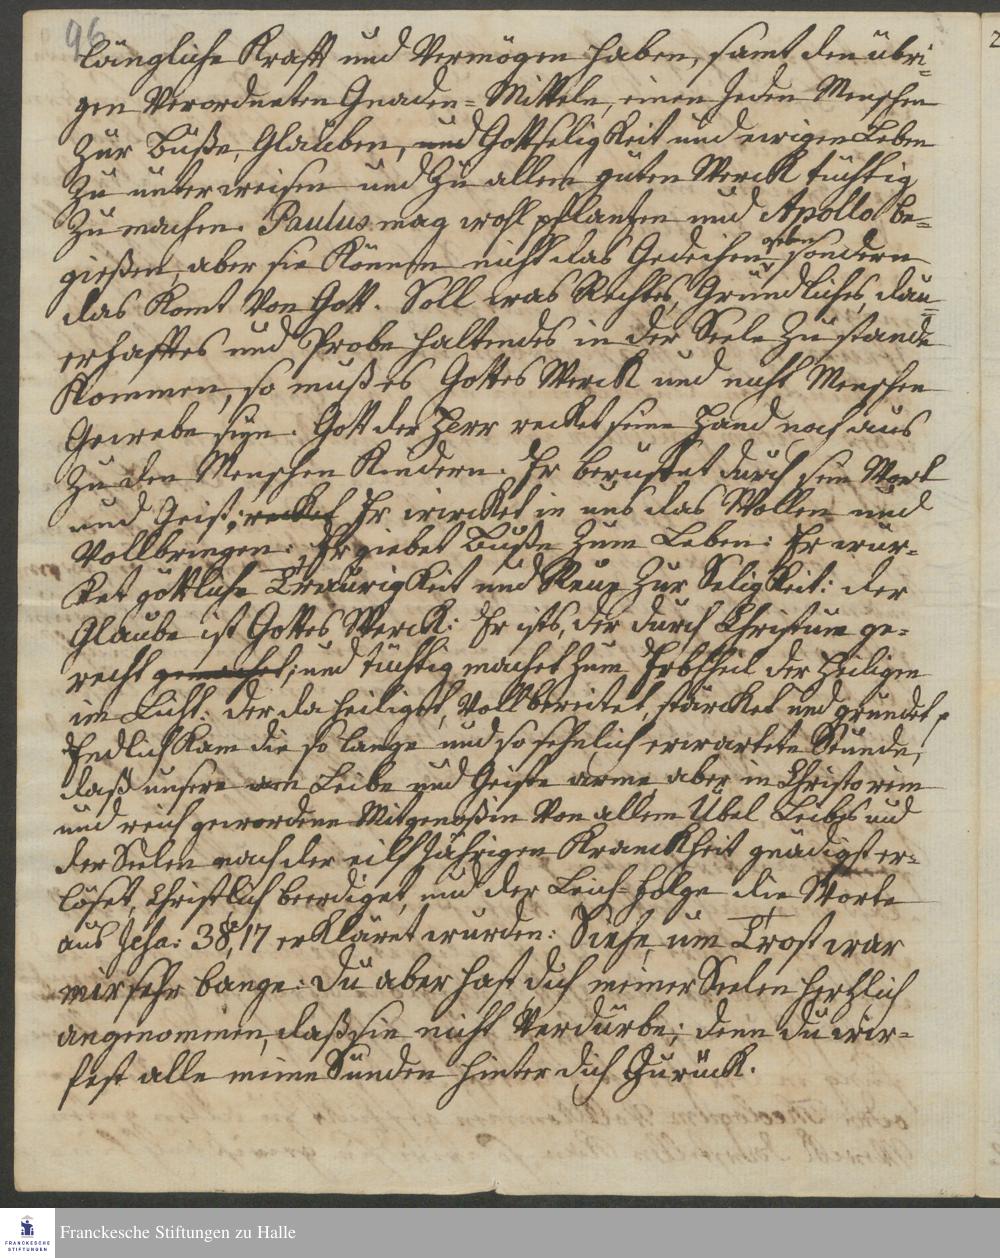 96
längliche Krafft und Vermögen haben, samt den übri=
gen Verordneten Gnaden=Mitteln, einen Jeden Menschen
Zur Buße, Glauben, und Gottseligkeit und ewigen Leben
Zu unterweisen und Zu allem guten Werck tüchtig
Zu machen. Paulus mag wohl pflantzen und Apollo be=
gießen, aber sie Können nicht das Gedeihen geben, sondern
das Komt Von Gott. Soll was Rechtes, Gründliches, dau=
erhafftes und Probe haltendes in der Seele Zu stande
Kommen, so muß es Gottes Werck und nicht Menschen
Gewebe seyn. Gott der Herr recket seine Hand noch aus
Zu den Menschen Kindern. Er beruffet durch sein Wort
und Geist; recket Er wircket in uns das Wollen und
Vollbringen: Er giebet Buße Zum Leben: Er wür=
Ket göttliche Traurigkeit und Reue Zur Seligkeit: der
Glaube ist Gottes Werck: Er ists, der durch Christum ge=
recht gemacht; und tüchtig machet Zum Erbtheil der Heiligen
im Licht: der da heiliget, Vollbereitet, stärcket und gründet p
Endlich Kam die so lange und so sehnlich erwartete Stunde,
daß unsere am Leibe und Geiste arme, aber in Christo rein
und reich gewordene Mitgenoßin Von allem Übel Leibes und
der Seelen nach der eilf Jährigen Kranckheit gnädigst er=
löset, Christlich beerdiget, und der Leich=Folge die Worte
aus Jesa: 38, 17 erkläret wurden: Siehe, um Trost war
mir sehr bange: Du aber hast dich meiner Seelen hertzlich
angenommen, daß sie nicht Verdürbe; denn du wir=
fest alle meine Sünden hinter dich Zurück.
2
Franckesche Stiftungen zu Halle
FRANCKESCHE
STIFTUNGEN